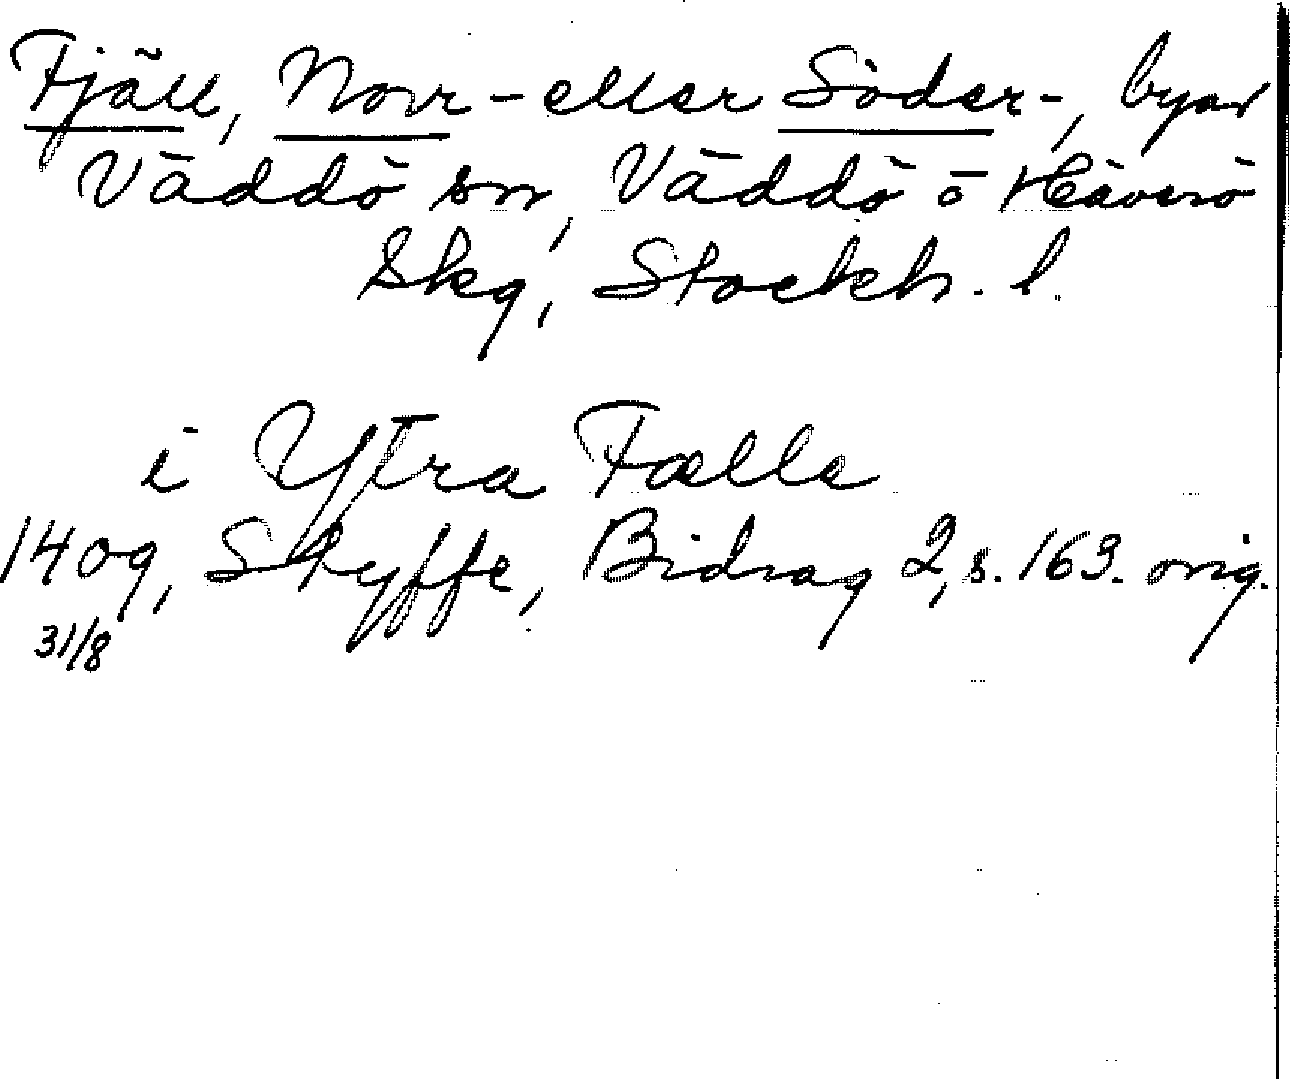 Fjäll, Norr- eller Söder-, byar
Väddö sn, Väddö o Häverö
skg, Stockh. l.
i Ytra Fælle
1409, Styffe, Bidrag 2, s. 163. orig.
31/8